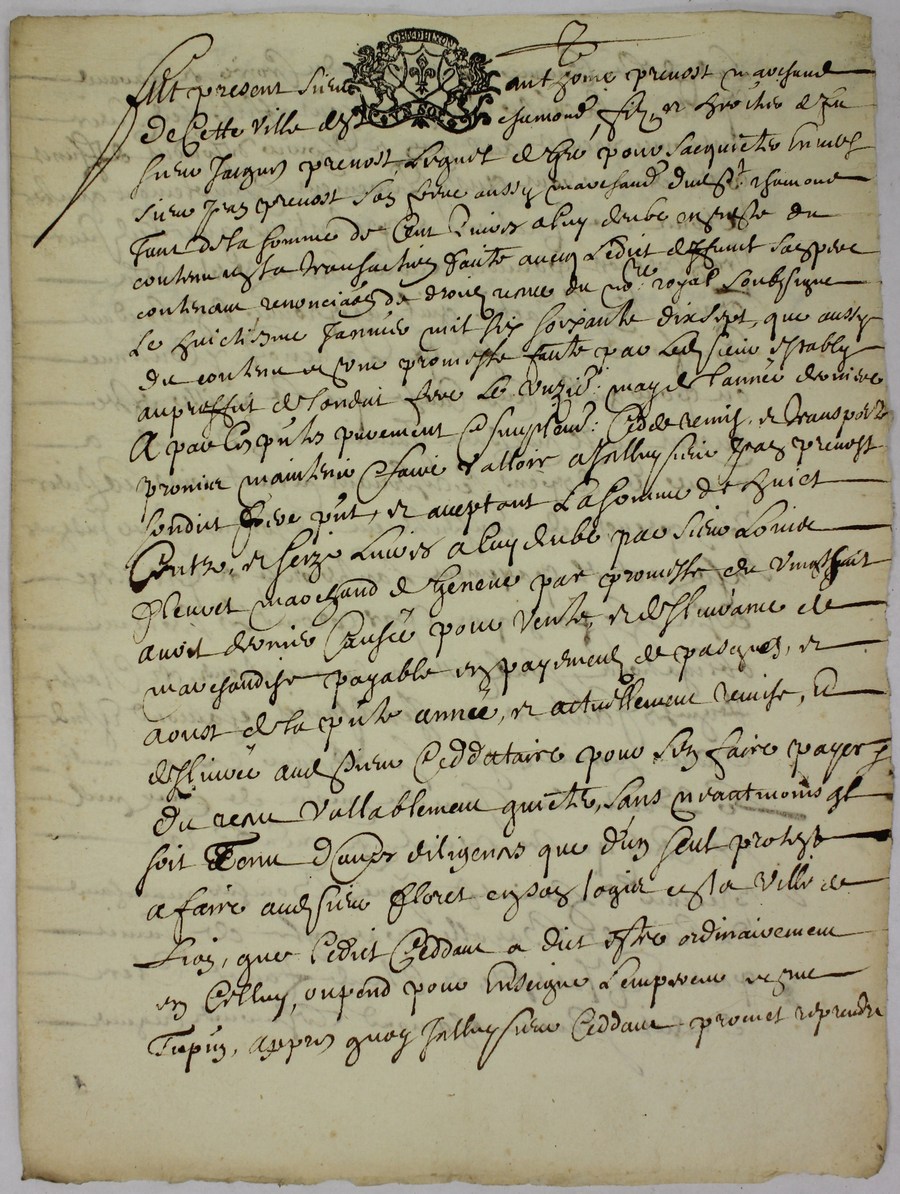 GEN DE LYON
2
Fut present Sieur anthoine prevost marchand
De Cette Ville de St chamond, filz et heritier de feu
sieur Jacques prevost, Lequel de gré pour sacquicter envers
sieur Jean prevost son frere aussy marchand dud St chamond
Tant de la somme de Cent Livres a luy deube en reste du
contenu en la transaction faicte avecq Ledict deffunct sas pere
contenant renonciaon de droict receue du nore royal soubzsigne
Le huictiesme Janvier mil six soixante dixsept, que aussy
du contenu en une promesse faicte par Led sieur estably
au proffict de sondict frere Le unzie may de L'annee derniere
A par Ces pntes purement et simplemt Ceddé remis, et transporté
promis maintenir et faire valloir a Jcelluy sieur Jean prevost
sondict frere pnt, et aceptant La somme de huict
Centz, et seize Livres a luy deube par sieur Louis
fleuret marchand de Geneve par promesse du vingthuit
avril dernier Causée pour vente, et deslivrance de
marchandise payable en payement de pasques, et
aoust de la pnte année, et actuellement remise, et
deslivrée aud sieur Ceddataire pour s'en faire payer et
du receu vallablement quicter, sans neantmoins quil
soit Tenu d'autres diligences que d'un seul protest
a faire aud sieur floret en son logis en la ville de
Lion, que Ledict Ceddant a dict estre ordinairement
en Celluy, ou pend pour Enseigne L'empereur en rue
Tupin, appres quoy Jcelluy sieur Ceddant promet reprendre